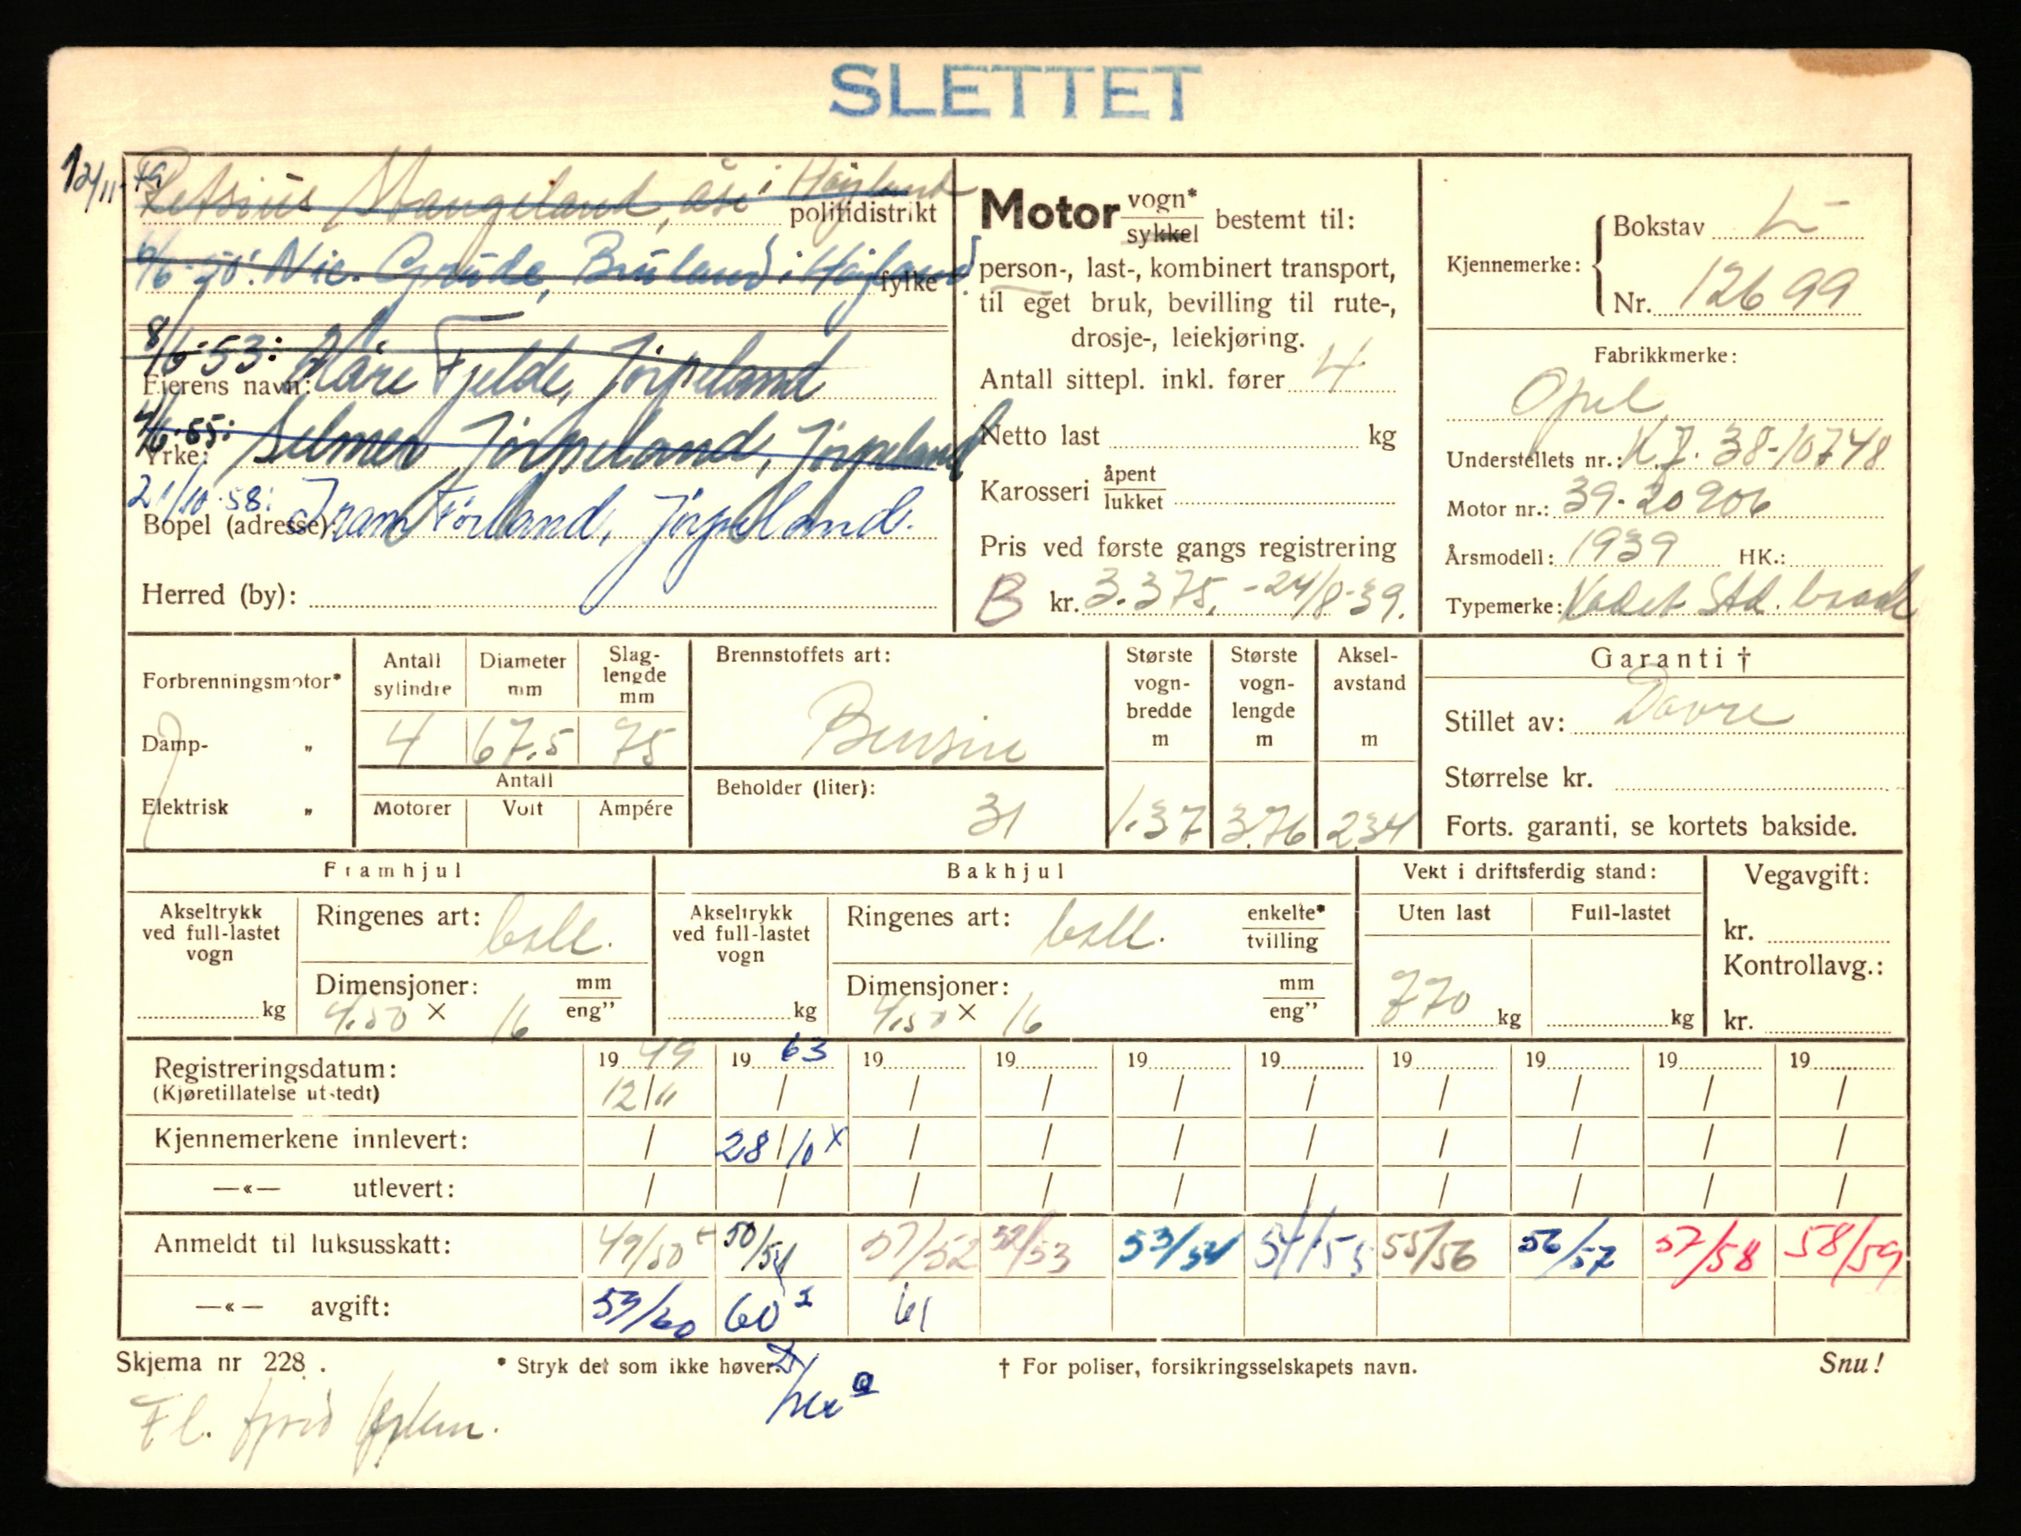 SLETTET
12/11-49 Retsius Stangeland, åse i Høyland
politidistrikt
6/6-50: Nic. Grude, Bruland i Høyland
fylke
8/6-53: Kåre Fjelde, Jørpeland
Eierens navn:
4/6-55: Selmer Jørpeland, Jørpeland
Yrke:
21/10-58: Tram Førland, Jørpeland.
Bopel (adresse):
Herred (by):
Motor vogn* sykkel bestemt til:
person-, last-, kombinert transport,
til eget bruk, bevilling til rute-,
drosje-, leiekjøring.
Antall sittepl. inkl. fører 4
Netto last kg
Karosseri åpent lukket
Pris ved første gangs registrering
B kr. 3.375,-24/8-39.
Kjennemerke: Bokstav L
Nr. 12699
Fabrikkmerke:
Opel
Understellets nr.: K7.38-10748
Motor nr.: 39-20906
Årsmodell: 1939 HK.:
Typemerke: Kadet Std.
Forbrenningsmotor*
Damp- "
Elektrisk "
Antall sylindre Diameter mm Slag-lengde mm
4 67.5 75
Antall
Motorer Volt Ampére
Brennstoffets art:
Bensin
Beholder (liter):
31
Største vogn-bredde m Største vogn-lengde m Aksel-avstand m
1.37 3.76 2.34
Garanti †
Stillet av: Dovre
Størrelse kr.
Forts. garanti, se kortets bakside.
Framhjul
Akseltrykk ved full-lastet vogn kg
Ringenes art: ball.
Dimensjoner: mm eng"
4.50 × 16
Bakhjul
Akseltrykk ved full-lastet vogn kg
Ringenes art: ball. enkelte* tvilling
Dimensjoner: mm eng"
4.50 × 16
Vekt i driftsferdig stand:
Uten last Full-lastet
770 kg kg
Vegavgift:
kr.
Kontrollavg.:
kr.
Registreringsdatum: 19 49 19 63 19 19 19 19 19 19 19 19
(Kjøretillatelse utstedt) 12/11 / / / / / / / / /
Kjennemerkene innlevert: / 28/10 x / / / / / / / /
—«— utlevert: / / / / / / / / / /
Anmeldt til luksusskatt: 49/50 50/51 51/52 52/53 53/54 54/55 55/56 56/57 57/58 58/59
—«— avgift: 59/60 60² 61
Skjema nr 228. * Stryk det som ikke høver. † For poliser, forsikringsselskapets navn. Snu!